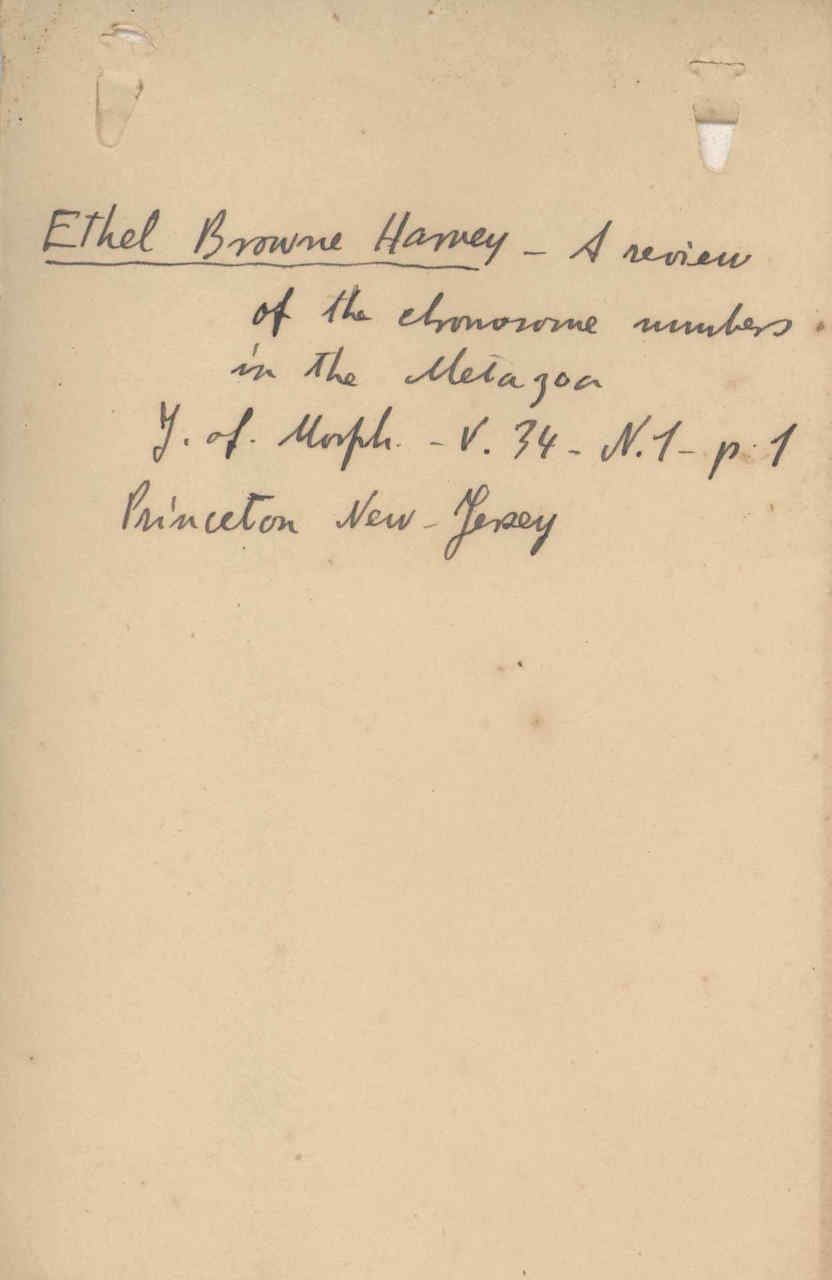 Ethel Browne Harvey - A review
of the chromosome numbers
in the Metazoa
J. of. Morph. - V. 34 - N. 1 - p. 1
Princeton New-Jersey